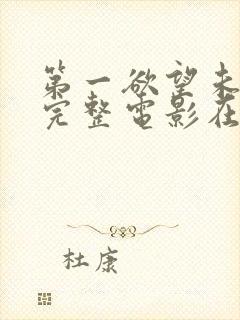 第一欲望未
完整电影在
杜康